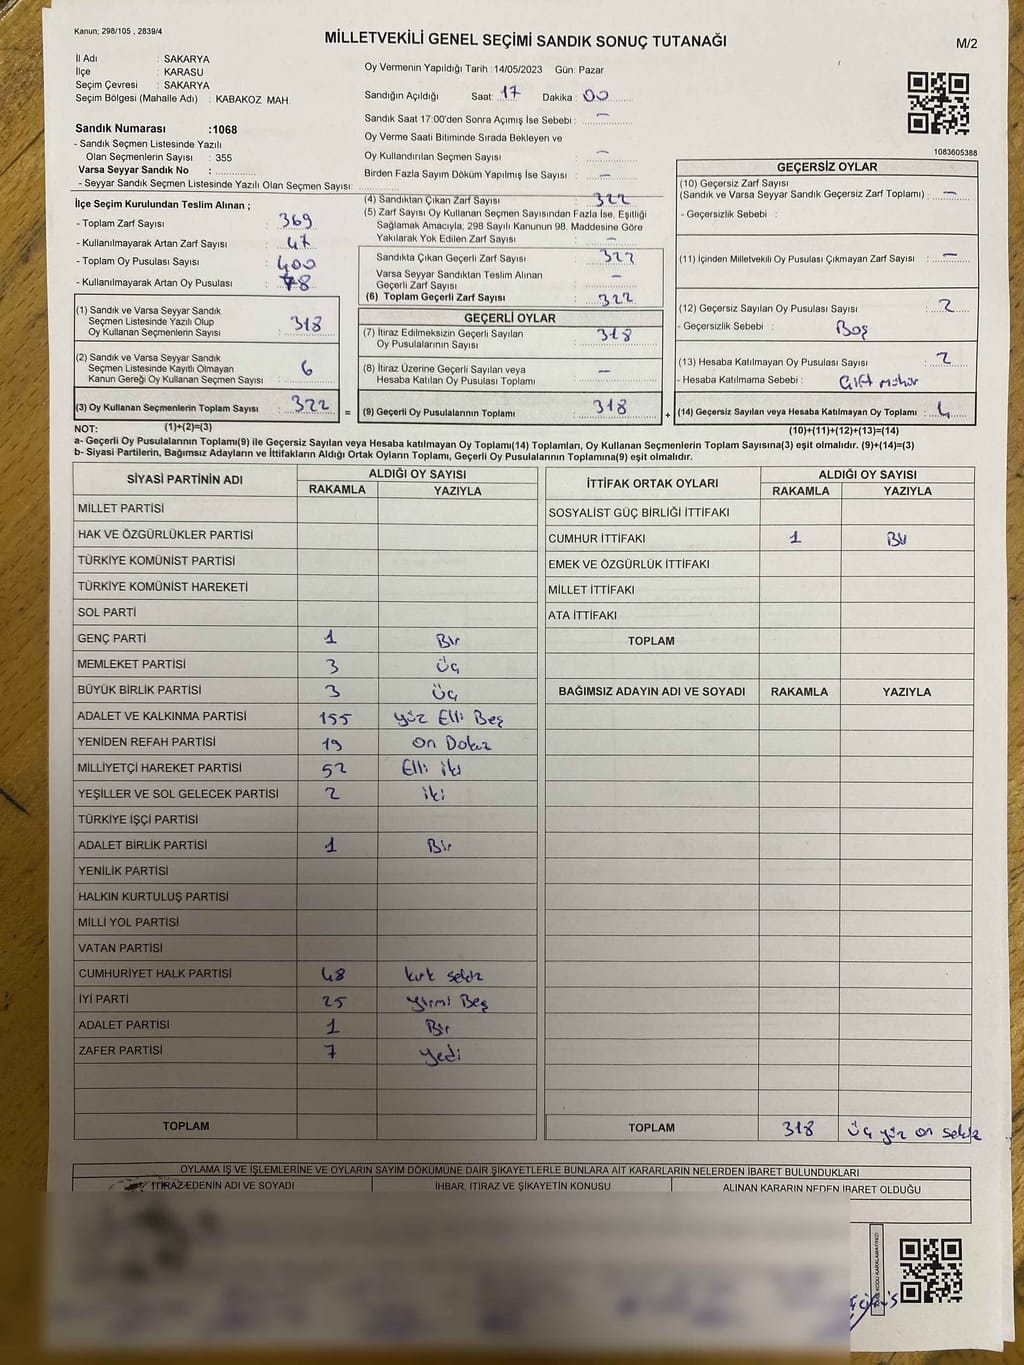 Kanun; 298/105 , 2839/4
MİLLETVEKİLİ GENEL SEÇİMİ SANDIK SONUÇ TUTANAĞI
M/2
İl Adı : SAKARYA
İlçe : KARASU
Seçim Çevresi : SAKARYA
Seçim Bölgesi (Mahalle Adı) : KABAKOZ MAH.
Sandık Numarası :1068
- Sandık Seçmen Listesinde Yazılı
Olan Seçmenlerin Sayısı : 355
Varsa Seyyar Sandık No :
- Seyyar Sandık Seçmen Listesinde Yazılı Olan Seçmen Sayısı:
Oy Vermenin Yapıldığı Tarih :14/05/2023 Gün: Pazar
Sandığın Açıldığı Saat: 17 Dakika : 00
Sandık Saat 17:00'den Sonra Açımış İse Sebebi : —
Oy Verme Saati Bitiminde Sırada Bekleyen ve
Oy Kullandırılan Seçmen Sayısı : —
Birden Fazla Sayım Döküm Yapılmış İse Sayısı : —
1083605388
İlçe Seçim Kurulundan Teslim Alınan ;
- Toplam Zarf Sayısı : 369
- Kullanılmayarak Artan Zarf Sayısı : 47
- Toplam Oy Pusulası Sayısı : 400
- Kullanılmayarak Artan Oy Pusulası : 78
(1) Sandık ve Varsa Seyyar Sandık
Seçmen Listesinde Yazılı Olup
Oy Kullanan Seçmenlerin Sayısı : 318
(2) Sandık ve Varsa Seyyar Sandık
Seçmen Listesinde Kayıtlı Olmayan
Kanun Gereği Oy Kullanan Seçmen Sayısı : 6
(3) Oy Kullanan Seçmenlerin Toplam Sayısı : 322 =
(4) Sandıktan Çıkan Zarf Sayısı : 322
(5) Zarf Sayısı Oy Kullanan Seçmen Sayısından Fazla İse, Eşitliği
Sağlamak Amacıyla; 298 Sayılı Kanunun 98. Maddesine Göre
Yakılarak Yok Edilen Zarf Sayısı : —
Sandıkta Çıkan Geçerli Zarf Sayısı : 322
Varsa Seyyar Sandıktan Teslim Alınan
Geçerli Zarf Sayısı : —
(6) Toplam Geçerli Zarf Sayısı : 322
GEÇERLİ OYLAR
(7) İtiraz Edilmeksizin Geçerli Sayılan
Oy Pusulalarının Sayısı : 318
(8) İtiraz Üzerine Geçerli Sayılan veya
Hesaba Katılan Oy Pusulası Toplamı : —
(9) Geçerli Oy Pusulalarının Toplamı : 318 +
GEÇERSİZ OYLAR
(10) Geçersiz Zarf Sayısı
(Sandık ve Varsa Seyyar Sandık Geçersiz Zarf Toplamı) : —
- Geçersizlik Sebebi :
(11) İçinden Milletvekili Oy Pusulası Çıkmayan Zarf Sayısı : —
(12) Geçersiz Sayılan Oy Pusulası Sayısı : 2
- Geçersizlik Sebebi : Boş
(13) Hesaba Katılmayan Oy Pusulası Sayısı : 2
- Hesaba Katılmama Sebebi : Çift mühür
(14) Geçersiz Sayılan veya Hesaba Katılmayan Oy Toplamı : 4
NOT: (1)+(2)=(3)
(10)+(11)+(12)+(13)=(14)
a- Geçerli Oy Pusulalarının Toplamı(9) ile Geçersiz Sayılan veya Hesaba katılmayan Oy Toplamı(14) Toplamları, Oy Kullanan Seçmenlerin Toplam Sayısına(3) eşit olmalıdır. (9)+(14)=(3)
b- Siyasi Partilerin, Bağımsız Adayların ve İttifakların Aldığı Ortak Oyların Toplamı, Geçerli Oy Pusulalarının Toplamına(9) eşit olmalıdır.
SİYASİ PARTİNİN ADI ALDIĞI OY SAYISI
RAKAMLA YAZIYLA
MİLLET PARTİSİ
HAK VE ÖZGÜRLÜKLER PARTİSİ
TÜRKİYE KOMÜNİST PARTİSİ
TÜRKİYE KOMÜNİST HAREKETİ
SOL PARTİ
GENÇ PARTİ 1 Bir
MEMLEKET PARTİSİ 3 Üç
BÜYÜK BİRLİK PARTİSİ 3 Üç
ADALET VE KALKINMA PARTİSİ 155 yüz Elli Beş
YENİDEN REFAH PARTİSİ 19 on Dokuz
MİLLİYETÇİ HAREKET PARTİSİ 52 Elli iki
YEŞİLLER VE SOL GELECEK PARTİSİ 2 iki
TÜRKİYE İŞÇİ PARTİSİ
ADALET BİRLİK PARTİSİ 1 Bir
YENİLİK PARTİSİ
HALKIN KURTULUŞ PARTİSİ
MİLLİ YOL PARTİSİ
VATAN PARTİSİ
CUMHURİYET HALK PARTİSİ 48 kırk sekiz
İYİ PARTİ 25 yirmi Beş
ADALET PARTİSİ 1 Bir
ZAFER PARTİSİ 7 yedi
TOPLAM
İTTİFAK ORTAK OYLARI ALDIĞI OY SAYISI
RAKAMLA YAZIYLA
SOSYALİST GÜÇ BİRLİĞİ İTTİFAKI
CUMHUR İTTİFAKI 1 Bir
EMEK VE ÖZGÜRLÜK İTTİFAKI
MİLLET İTTİFAKI
ATA İTTİFAKI
TOPLAM
BAĞIMSIZ ADAYIN ADI VE SOYADI RAKAMLA YAZIYLA
TOPLAM 318 üç yüz on sekiz
OYLAMA İŞ VE İŞLEMLERİNE VE OYLARIN SAYIM DÖKÜMÜNE DAİR ŞİKAYETLERLE BUNLARA AİT KARARLARIN NELERDEN İBARET BULUNDUKLARI
İTİRAZ EDENİN ADI VE SOYADI İHBAR, İTİRAZ VE ŞİKAYETİN KONUSU ALINAN KARARIN NEDEN İBARET OLDUĞU